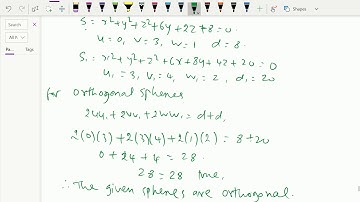 S = x²+y²+z²+6y+2z+8=0.
u=0, v=3, w=1 d=8.
S₁ = x²+y²+z²+6x+8y+4z+20=0
u₁=3, v₁=4, w₁=2, d₁=20
for orthogonal spheres
2uu₁+2vv₁+2ww₁ = d+d₁
2(0)(3)+2(3)(4)+2(1)(2) = 8+20
0+24+4 = 28.
28=28 True,
∴ The given spheres are orthogonal.